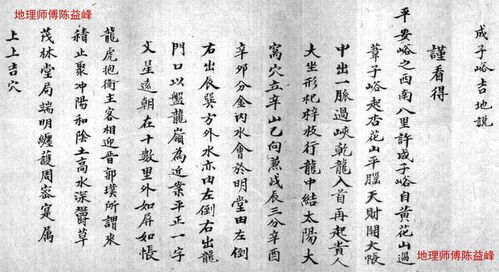 地理师傅陈益峰
成子峪吉地说
謹看得
平安峪之西南八里許成子峪自黄花山過
葦子峪起杏花山平腦天財開大帳
中出一脈過峽乾龍入首再起貴人
大坐形杞梓枝行龍中結太陽大
窩穴立辛山乙向兼戌辰三分辛酉
辛夘分金內水會於明堂由左倒
右出辰巽方外水亦由左倒右出龍
門口以盤龍嶺為近案平正一字
文星遠朝在十數里外如屏如帳
龍虎抱衛主客相迎晋郭璞所謂來
積止聚冲陽和陰土高水深鬱草
茂林堂局端明纏護周密寔属
上上吉穴
地理师傅陈益峰